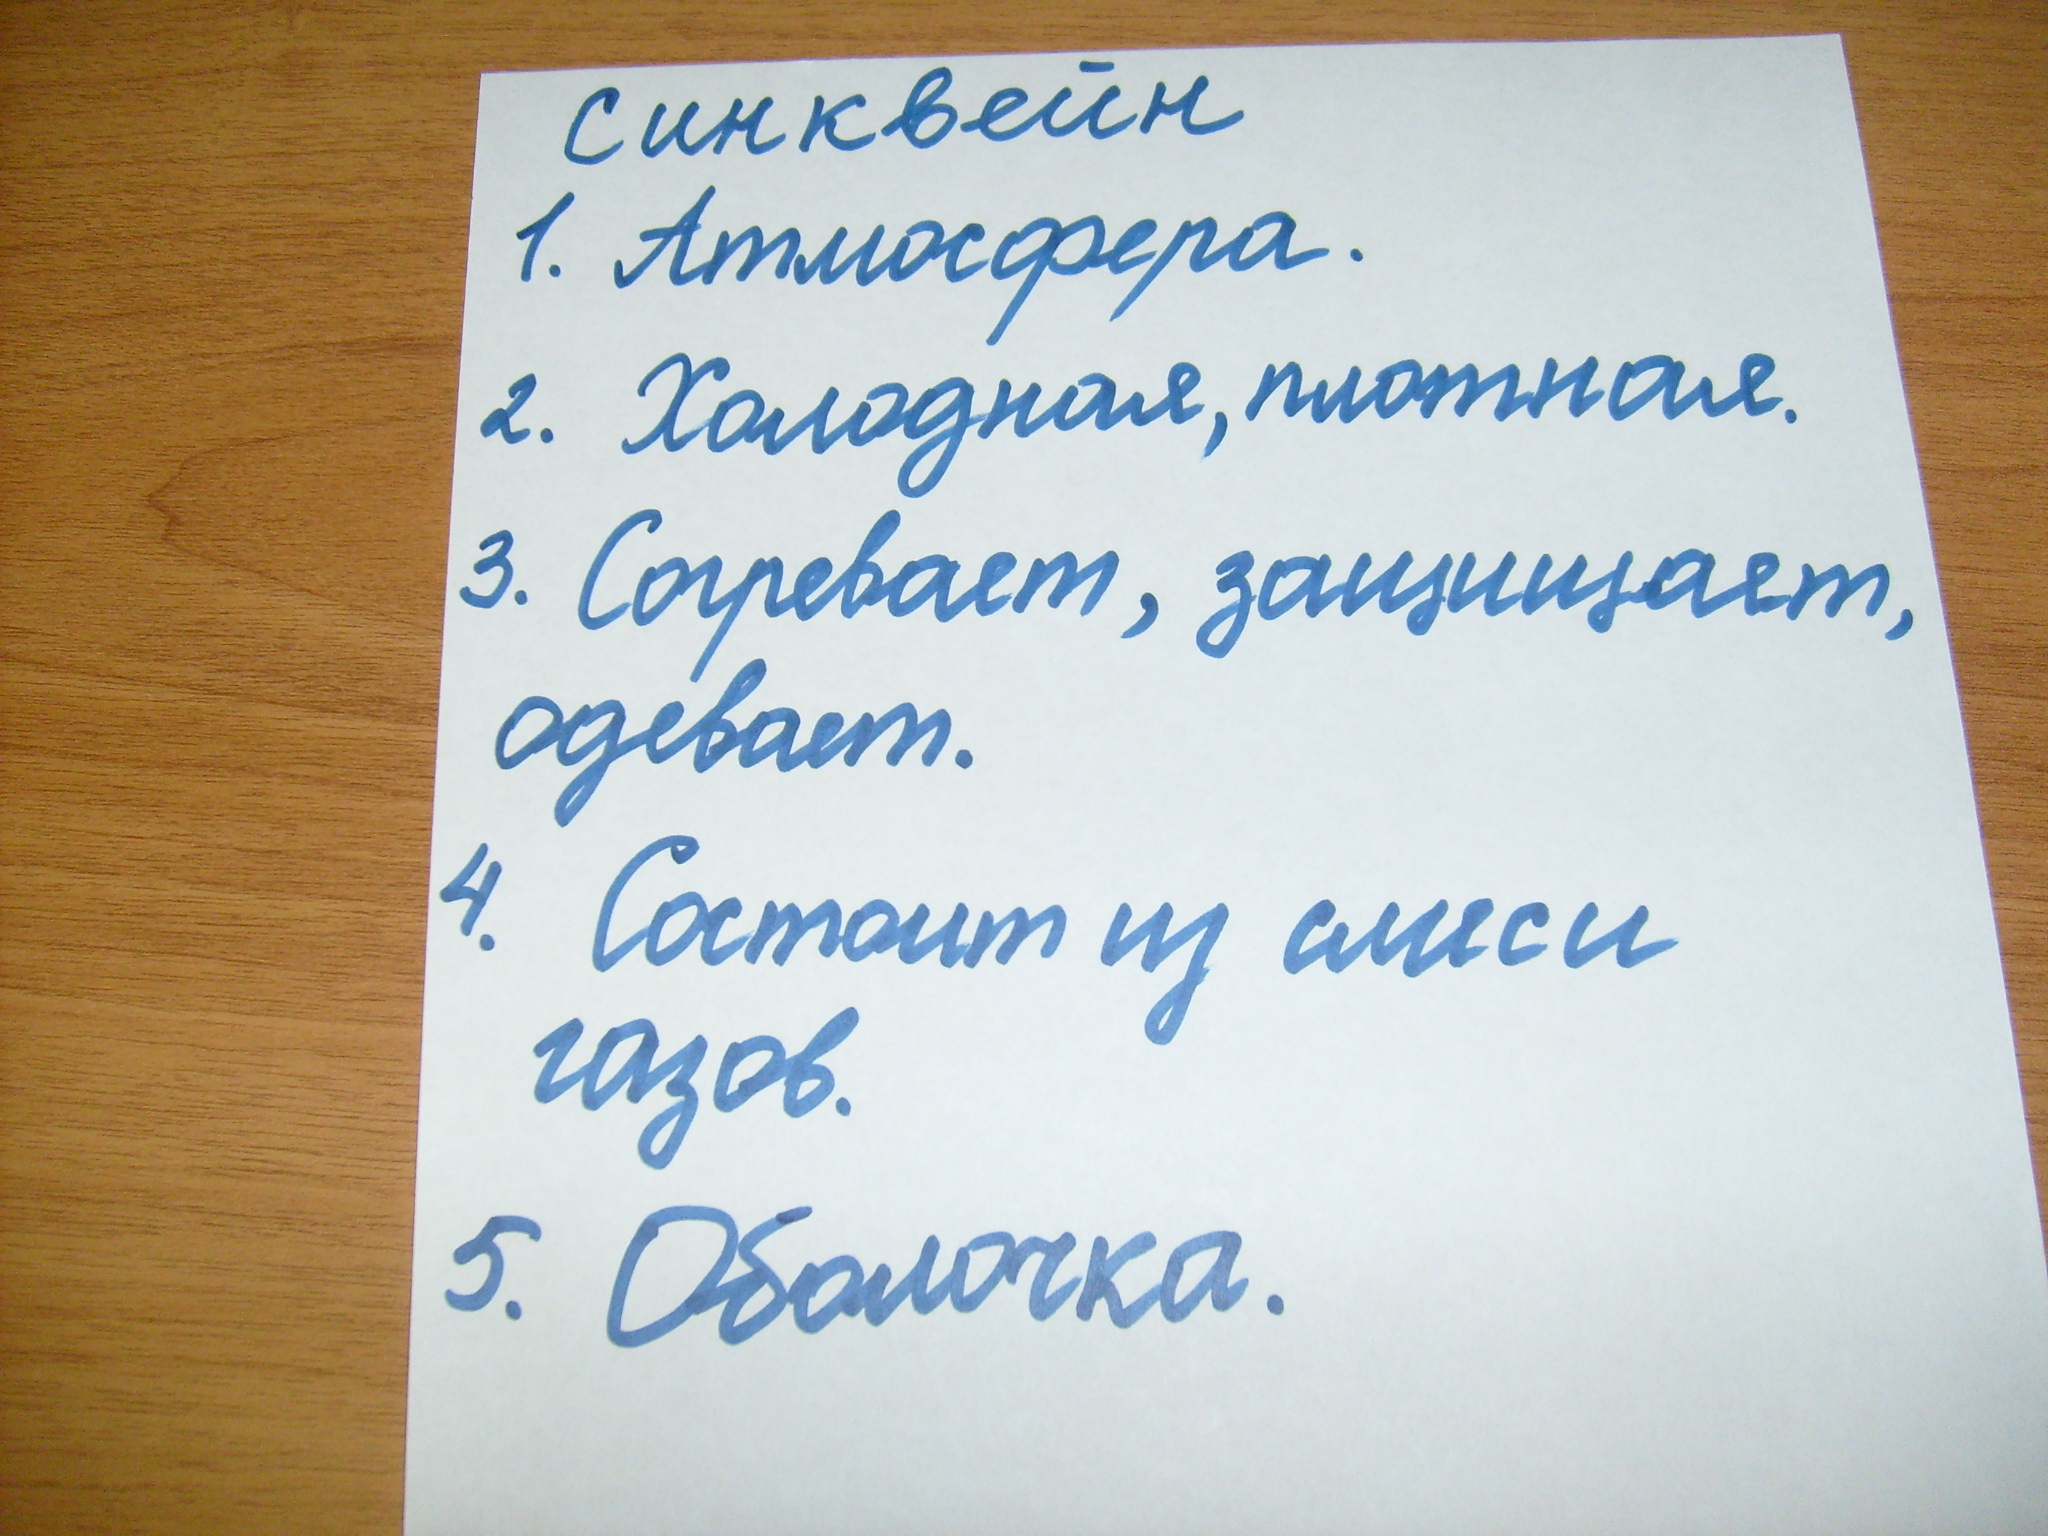 Синквейн
1. Атмосфера.
2. Холодная, плотная.
3. Согревает, защищает,
одевает.
4. Состоит из смеси
газов.
5. Оболочка.